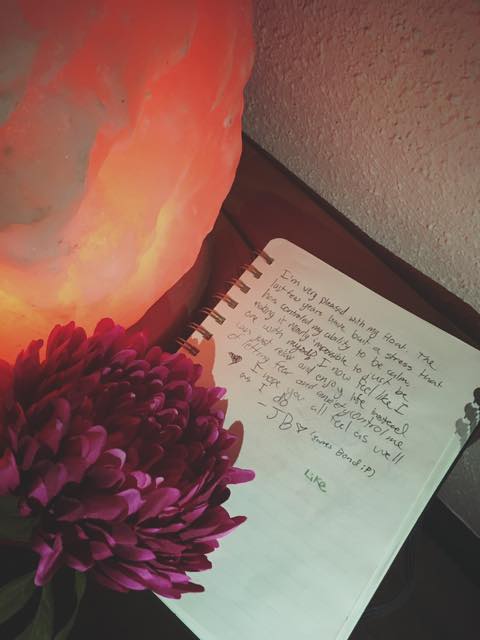 I'm very pleased with my float. The
last few years have a stress
has controled my ability to be calm,
making it nearly impossible to just be
one with myself. I now feel like I
can just relax and enjoy life instead
of letting fear and anxiety control me
♥ I hope you all feel as well
as I do
- JB ♥ (James Bond ;P)
Like